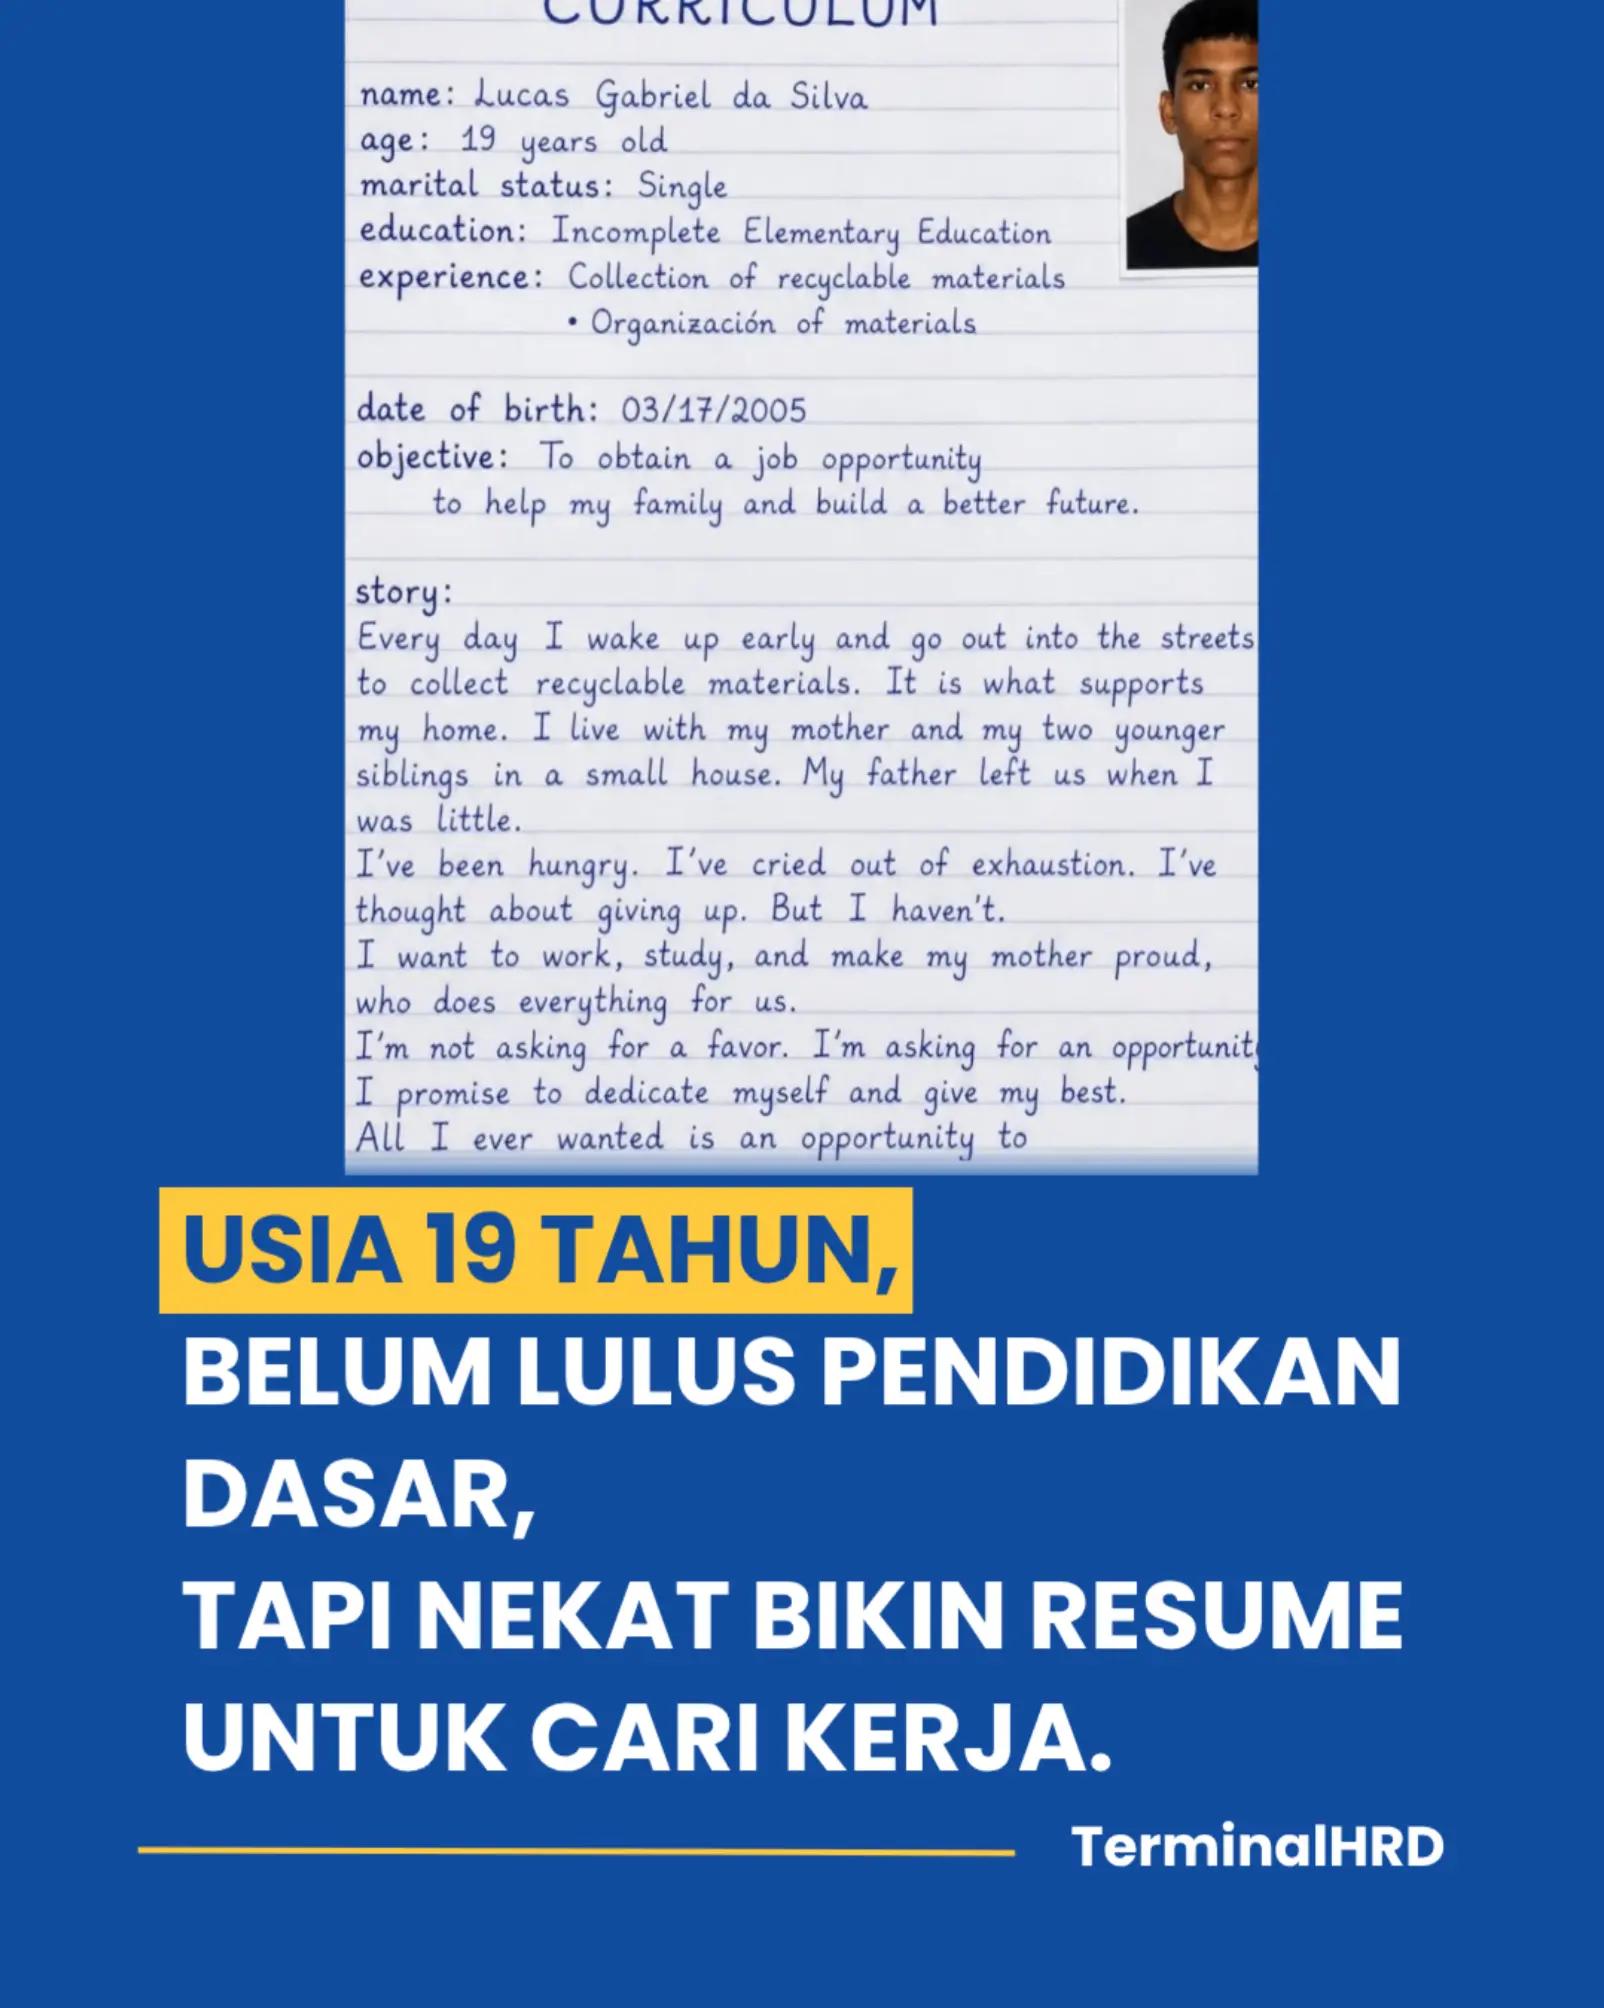 CURRICULUM
name: Lucas Gabriel da Silva
age: 19 years old
marital status: Single
education: Incomplete Elementary Education
experience: Collection of recyclable materials
• Organización of materials
date of birth: 03/17/2005
objective: To obtain a job opportunity
to help my family and build a better future.
story:
Every day I wake up early and go out into the streets
to collect recyclable materials. It is what supports
my home. I live with my mother and my two younger
siblings in a small house. My father left us when I
was little.
I've been hungry. I've cried out of exhaustion. I've
thought about giving up. But I haven't.
I want to work, study, and make my mother proud,
who does everything for us.
I'm not asking for a favor. I'm asking for an opportunity
I promise to dedicate myself and give my best.
All I ever wanted is an opportunity to
USIA 19 TAHUN,
BELUM LULUS PENDIDIKAN
DASAR,
TAPI NEKAT BIKIN RESUME
UNTUK CARI KERJA.
TerminalHRD